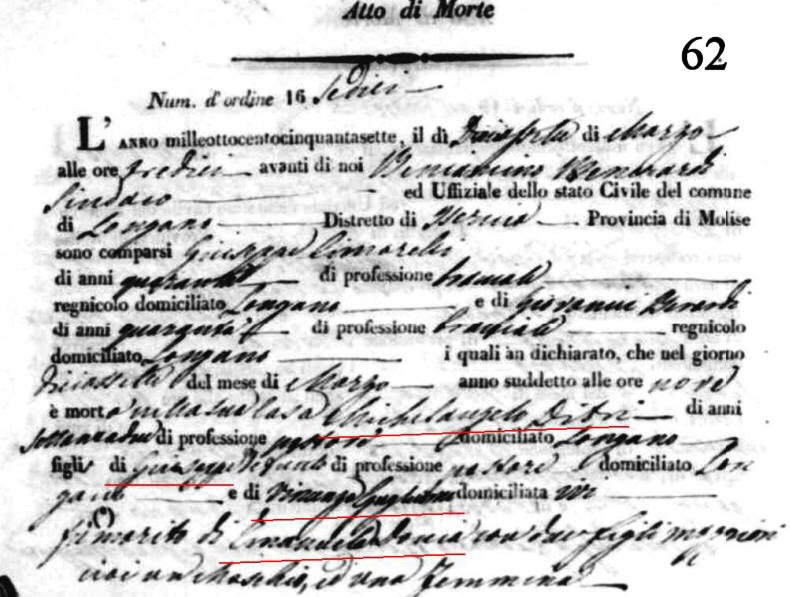 Atto di Morte
62
Num. d'ordine 16 Sedici
L'ANNO milleottocentocinquantasette, il dì Diciassette di Marzo
alle ore tredici avanti di noi Beniamino Venerardi
Sindaco ed Uffiziale dello stato Civile del comune
di Longano Distretto di Isernia Provincia di Molise
sono comparsi Giuseppe Cimorelli
di anni quaranta di professione bracciale
regnicolo domiciliato Longano e di Giovanni Berardi
di anni quaranta di professione bracciale regnicolo
domiciliato Longano i quali àn dichiarato, che nel giorno
Diciassette del mese di Marzo anno suddetto alle ore nove
è morto nella sua Casa Michelangelo Ditri di anni
Settantadue di professione domiciliato Longano
figlio di Giuseppe di professione pastore domiciliato Lon
gano e di Vincenza domiciliata ivi
(*)
marito di Emanuela con due figli maggiori
cioè un Maschio, ed una Femmina